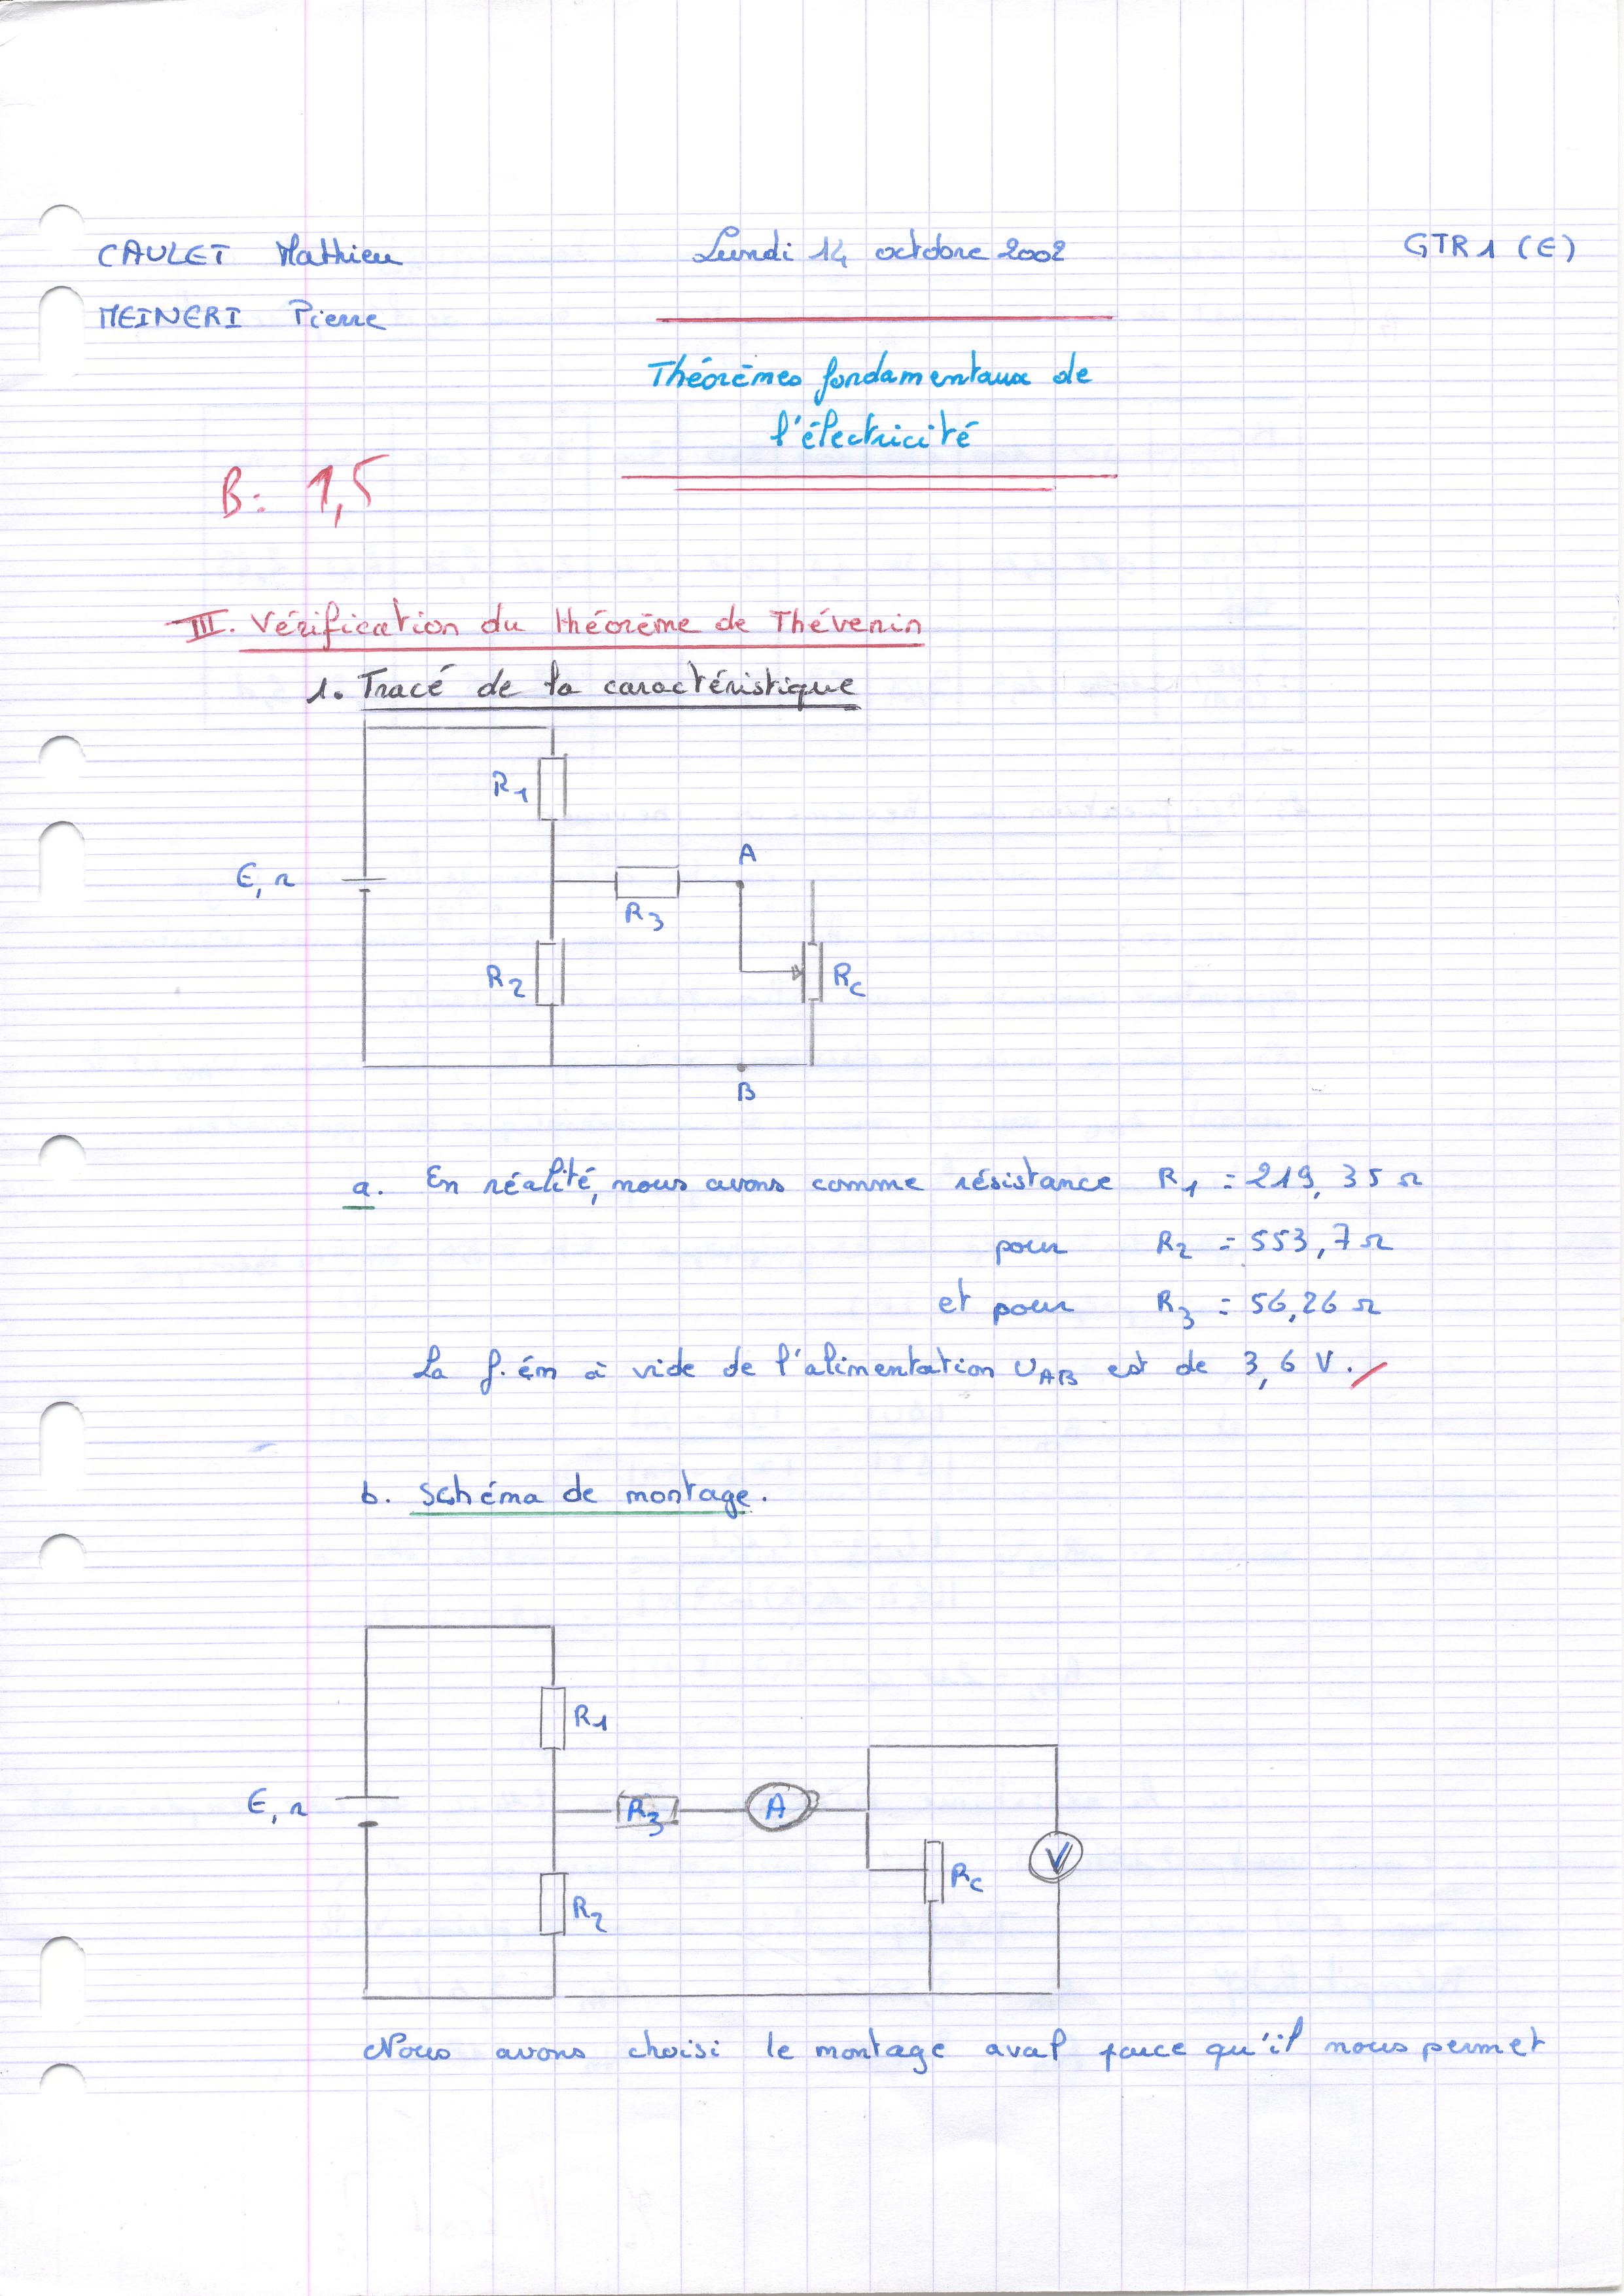 CAULET Mathieu
Lundi 14 octobre 2002
GTR1 (E)
MEINERI Pierre
Théorèmes fondamentaux de
l'électricité
B: 1,5
III. Vérification du théorème de Thévenin
1. Tracé de la caractéristique
R1
A
E, r
R3
R2
Rc
B
a. En réalité, nous avons comme résistance R1 = 219,35 Ω
pour R2 = 553,7 Ω
et pour R3 = 56,26 Ω
La f.ém à vide de l'alimentation UAB est de 3,6 V.
b. Schéma de montage.
R1
E, r
R3
A
V
Rc
R2
Nous avons choisi le montage aval parce qu'il nous permet